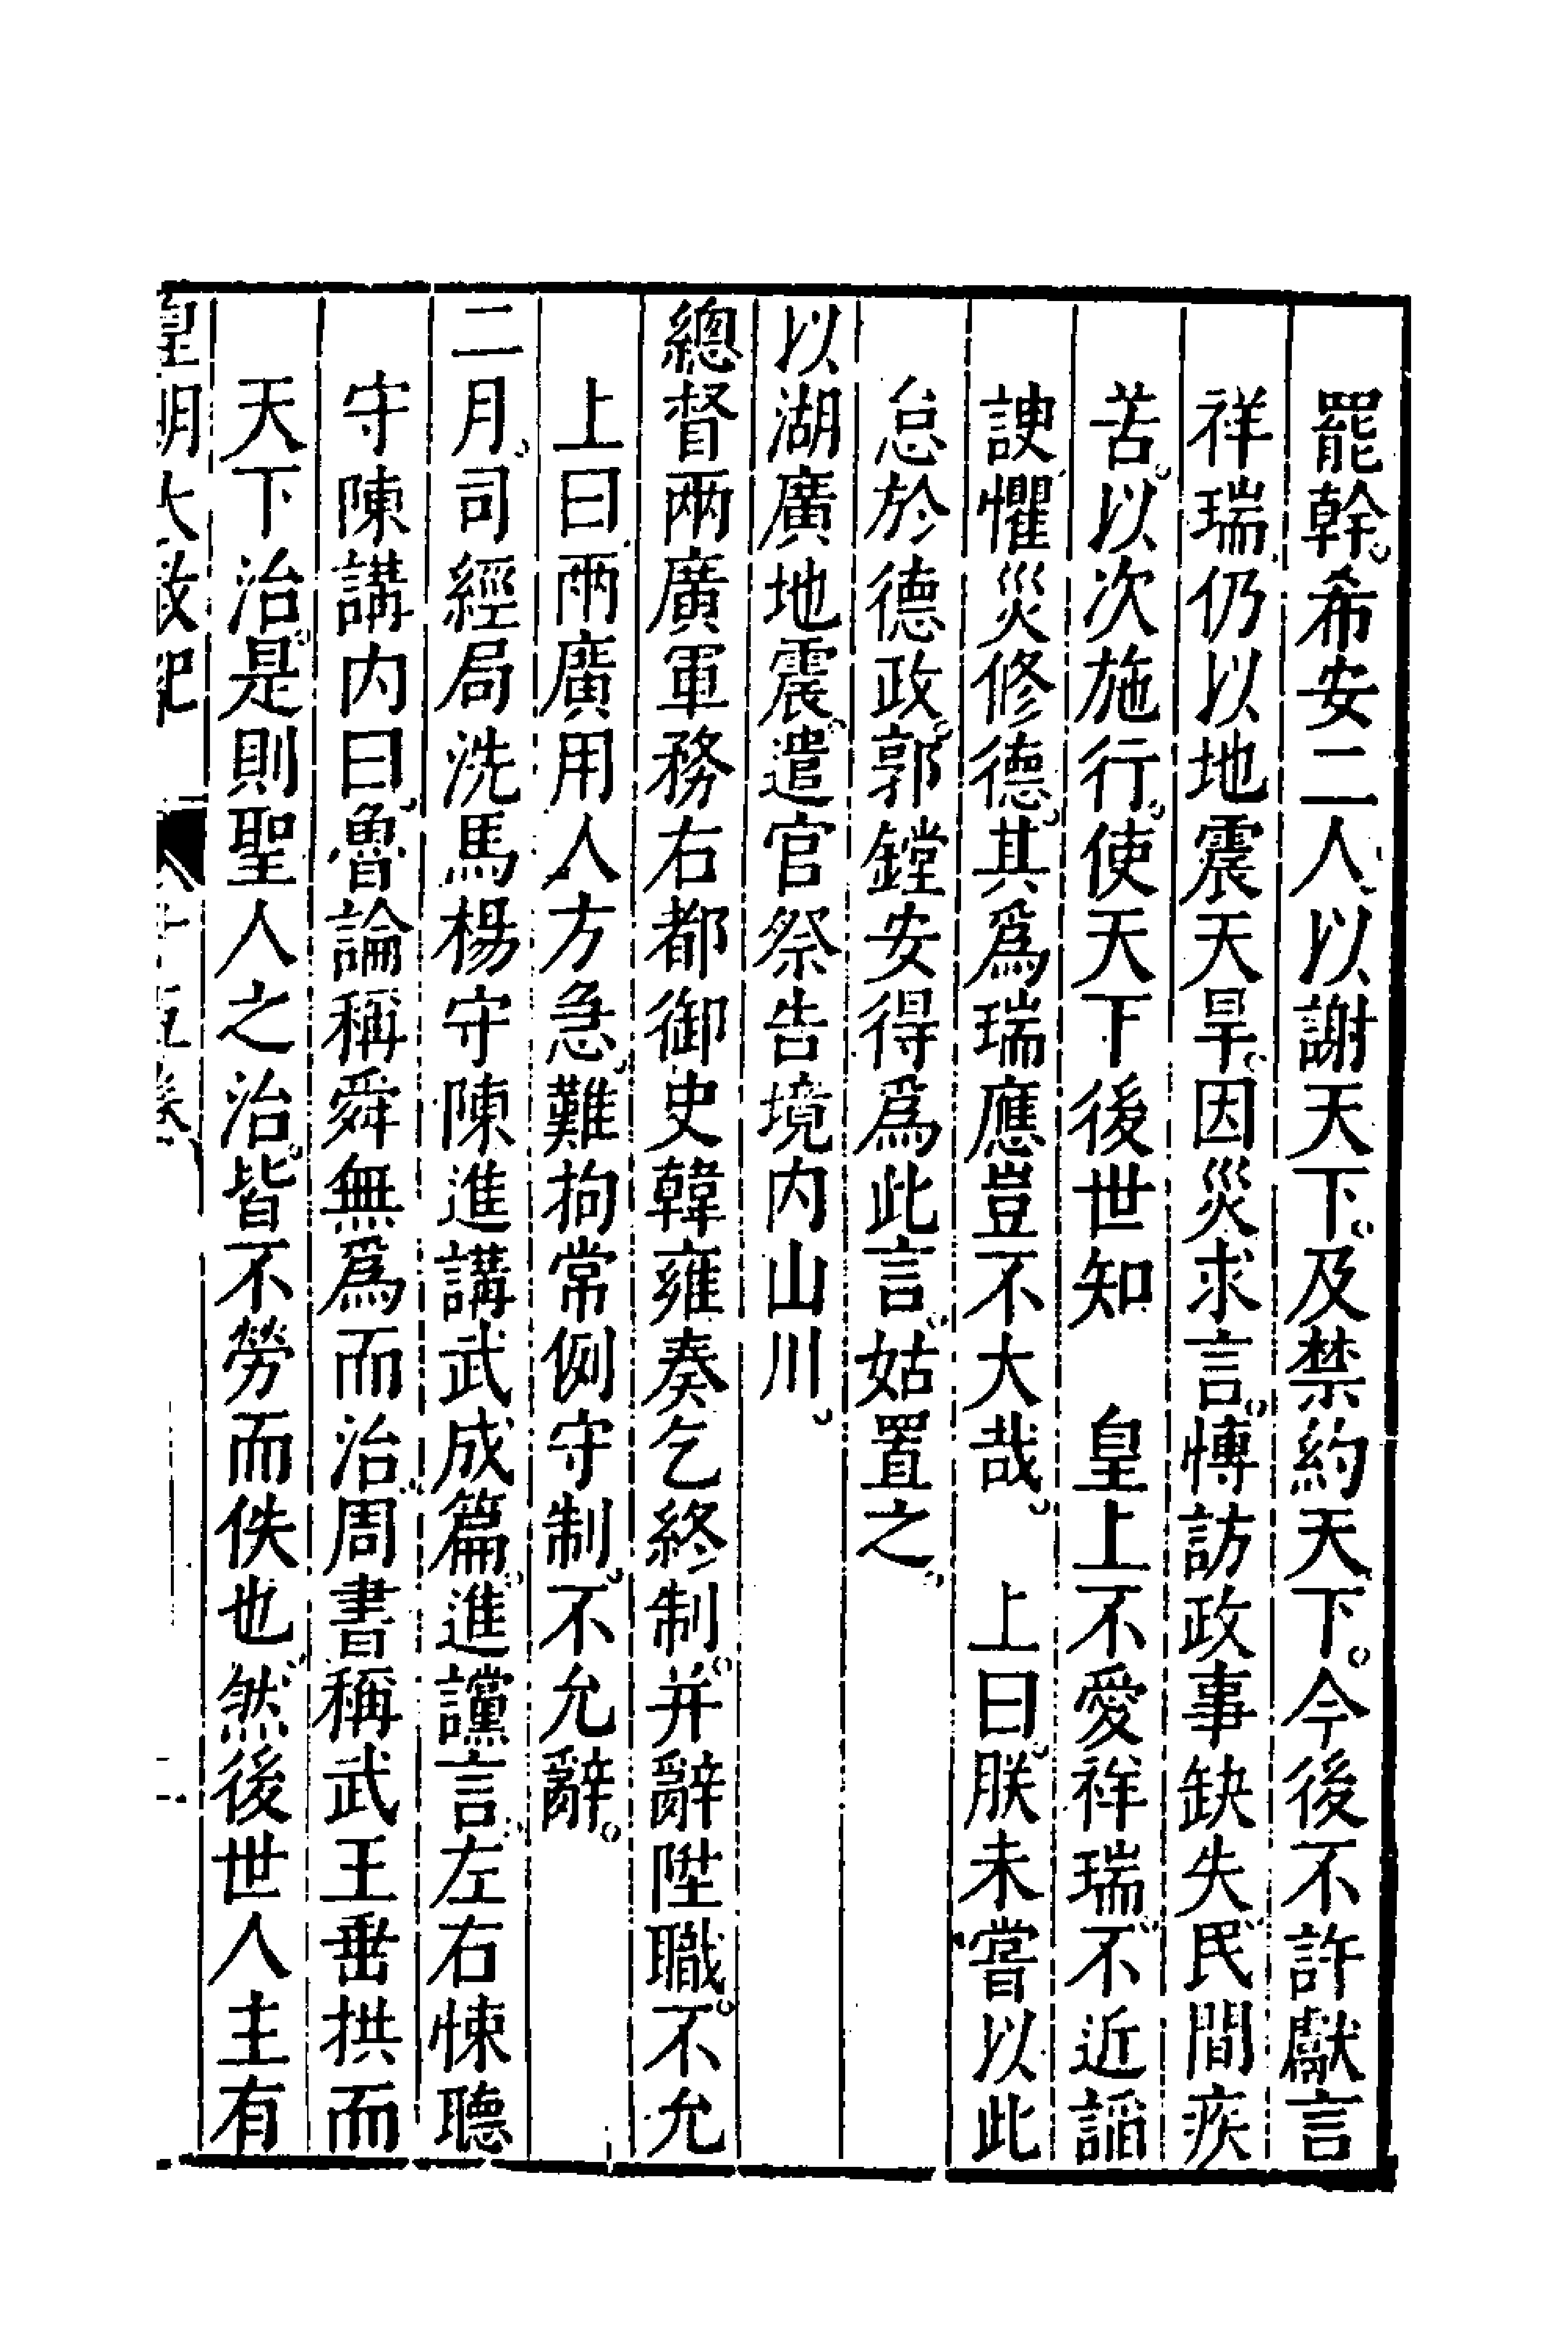 罷幹。希安二人、以謝天下。及禁約天下。今後不許獻言
祥瑞、仍以地震天旱。因災求言。愽訪政事缺失。民間疾
苦。以次施行。使天下後世知　皇上不愛祥瑞。不近謟
諛、懼災修德。其爲瑞應豈不大哉。　上曰。朕未嘗以此
怠於德政。郭鏜安得爲此言。姑置之。
以湖廣地震。遣官祭告境内山川。
總督兩廣軍務右都御史韓雍奏乞終制。并辭陞職。不允
上曰、兩廣用人方急。難拘常例守制。不允辭。
二月。司經局洗馬楊守陳進講武成篇。進讜言。左右悚聽
守陳講内曰。魯論稱舜無爲而治。周書稱武王垂拱而
天下治。是則聖人之治。皆不勞而佚也。然後世人主有
皇明大政紀　十五卷　二